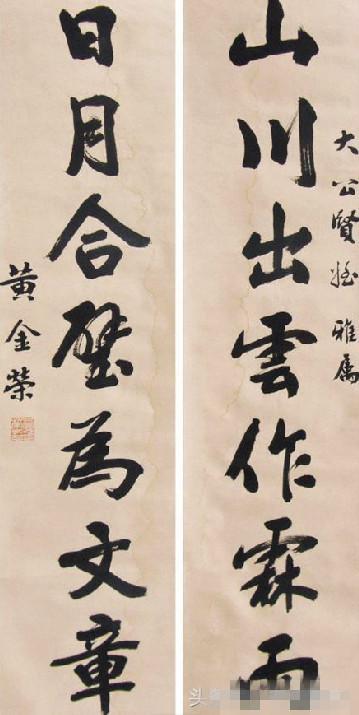 山川出雲作霖雨
大公賢姪雅屬
日月合璧為文章
黄金榮